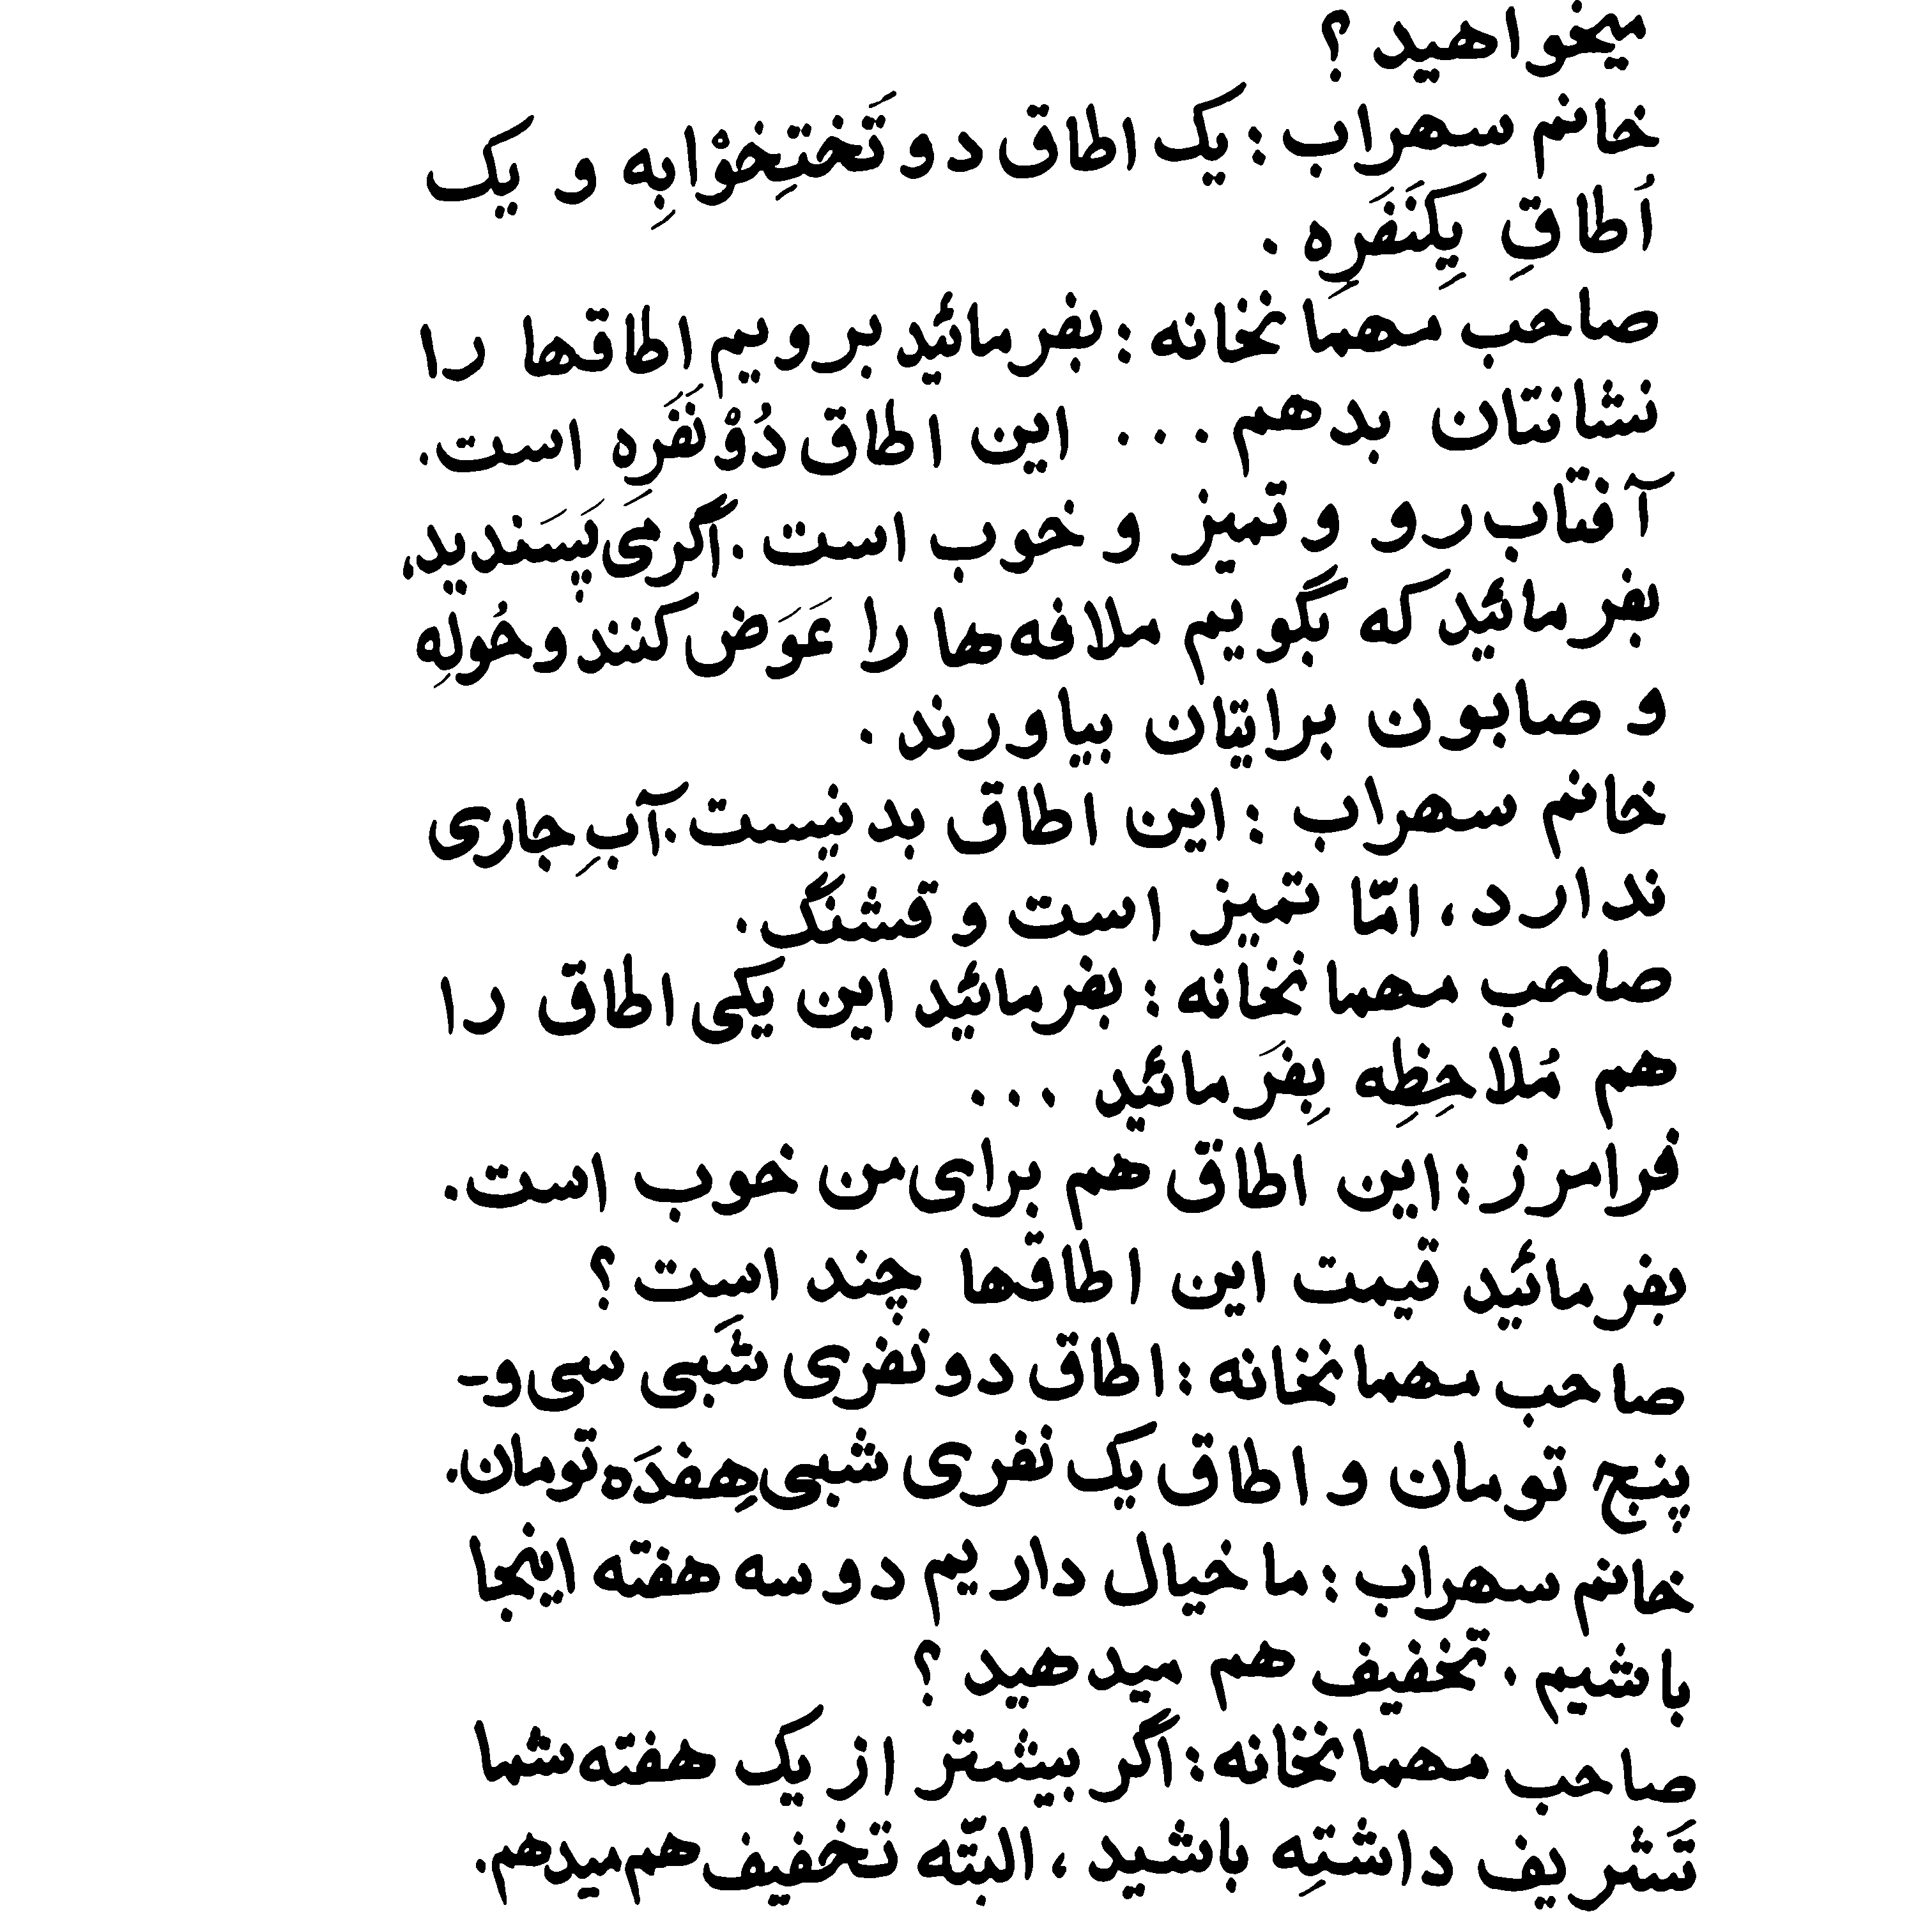 میخواهید ؟
خانم سهراب : یک اطاق دو تَختِخوْابِه و یک
اُطاقِ یِکنَفَرِه .
صاحب مهمانخانه : بفرمائید برویم اطاقها را
نشانتان بدهم . . . این اطاق دُوْنَفَرِه است.
آفتاب رو و تمیز و خوب است . اَگر می پَسَندید،
بفرمائید که بگویم ملافه ها را عَوَض کنند و حُولِه
و صابون برایتان بیاورند .
خانم سهراب : این اطاق بد نیست . آبِ جاری
ندارد ، امّا تمیز است و قشنگ .
صاحب مهمانخانه : بفرمائید این یکی اطاق را
هم مُلاحِظِه بِفَرمائید . . .
فرامرز : این اطاق هم برای من خوب است .
بفرمائید قیمت این اطاقها چند است ؟
صاحب مهمانخانه : اطاق دو نفری شَبی سی و-
پنج تومان و اطاق یک نفری شبی هِفدَه تومان.
خانم سهراب : ما خیال داریم دو سه هفته اینجا
باشیم . تخفیف هم میدهید ؟
صاحب مهمانخانه : اگر بیشتر از یک هفته شما
تَشریف داشتِه باشید ، البتّه تخفیف هم میدهم.